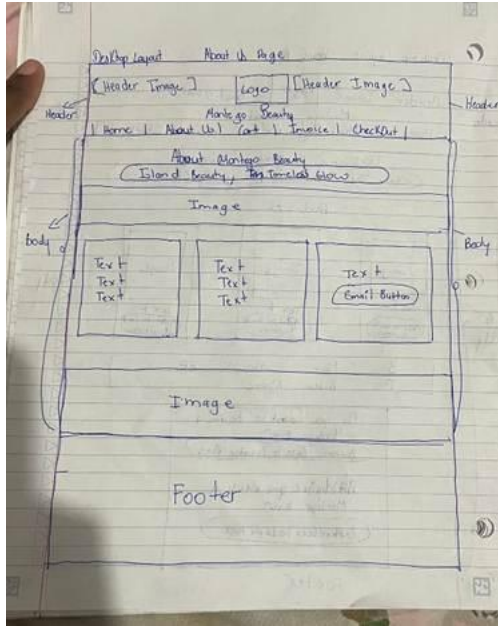 Desktop Layout About Us Page
[Header Image] Logo [Header Image]
Header Header
Montego Beauty
| Home | About Us | Cart | Invoice | CheckOut |
About Montego Beauty
Island Beauty, Timeless Glow
Image
Body Body
Text Text Text
Text Text Email Button
Text Text
Image
Footer